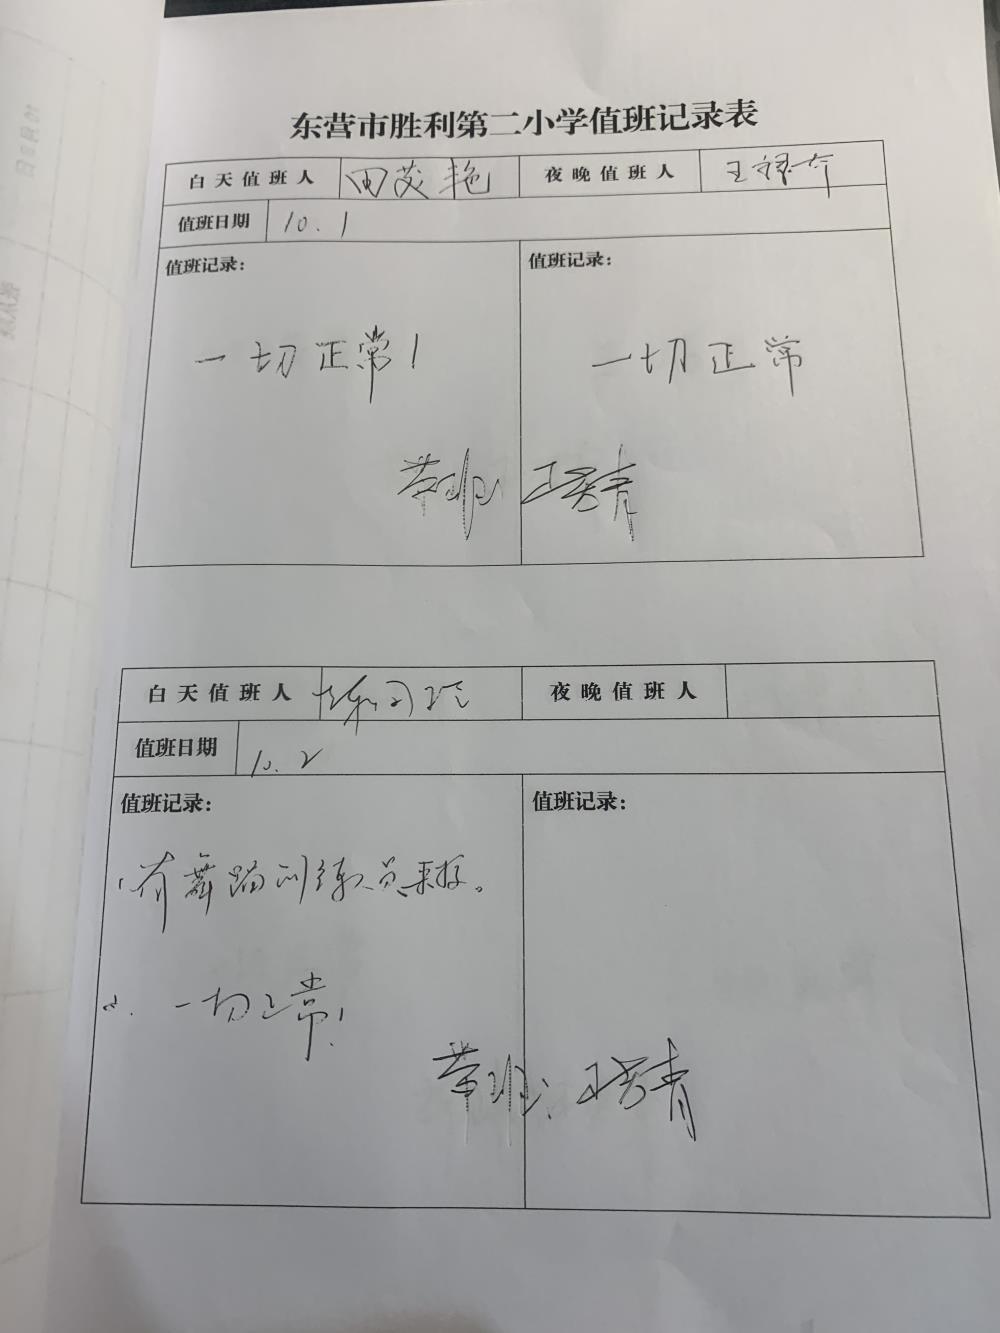 东营市胜利第二小学值班记录表
白天值班人 田茂艳 夜晚值班人 王
值班日期 10.1
值班记录: 值班记录:
一切正常! 一切正常
带班 王秀青
白天值班人 夜晚值班人
值班日期 10.2
值班记录: 值班记录:
1.有舞蹈训练人员来校。
2. 一切正常!
带班: 王秀青